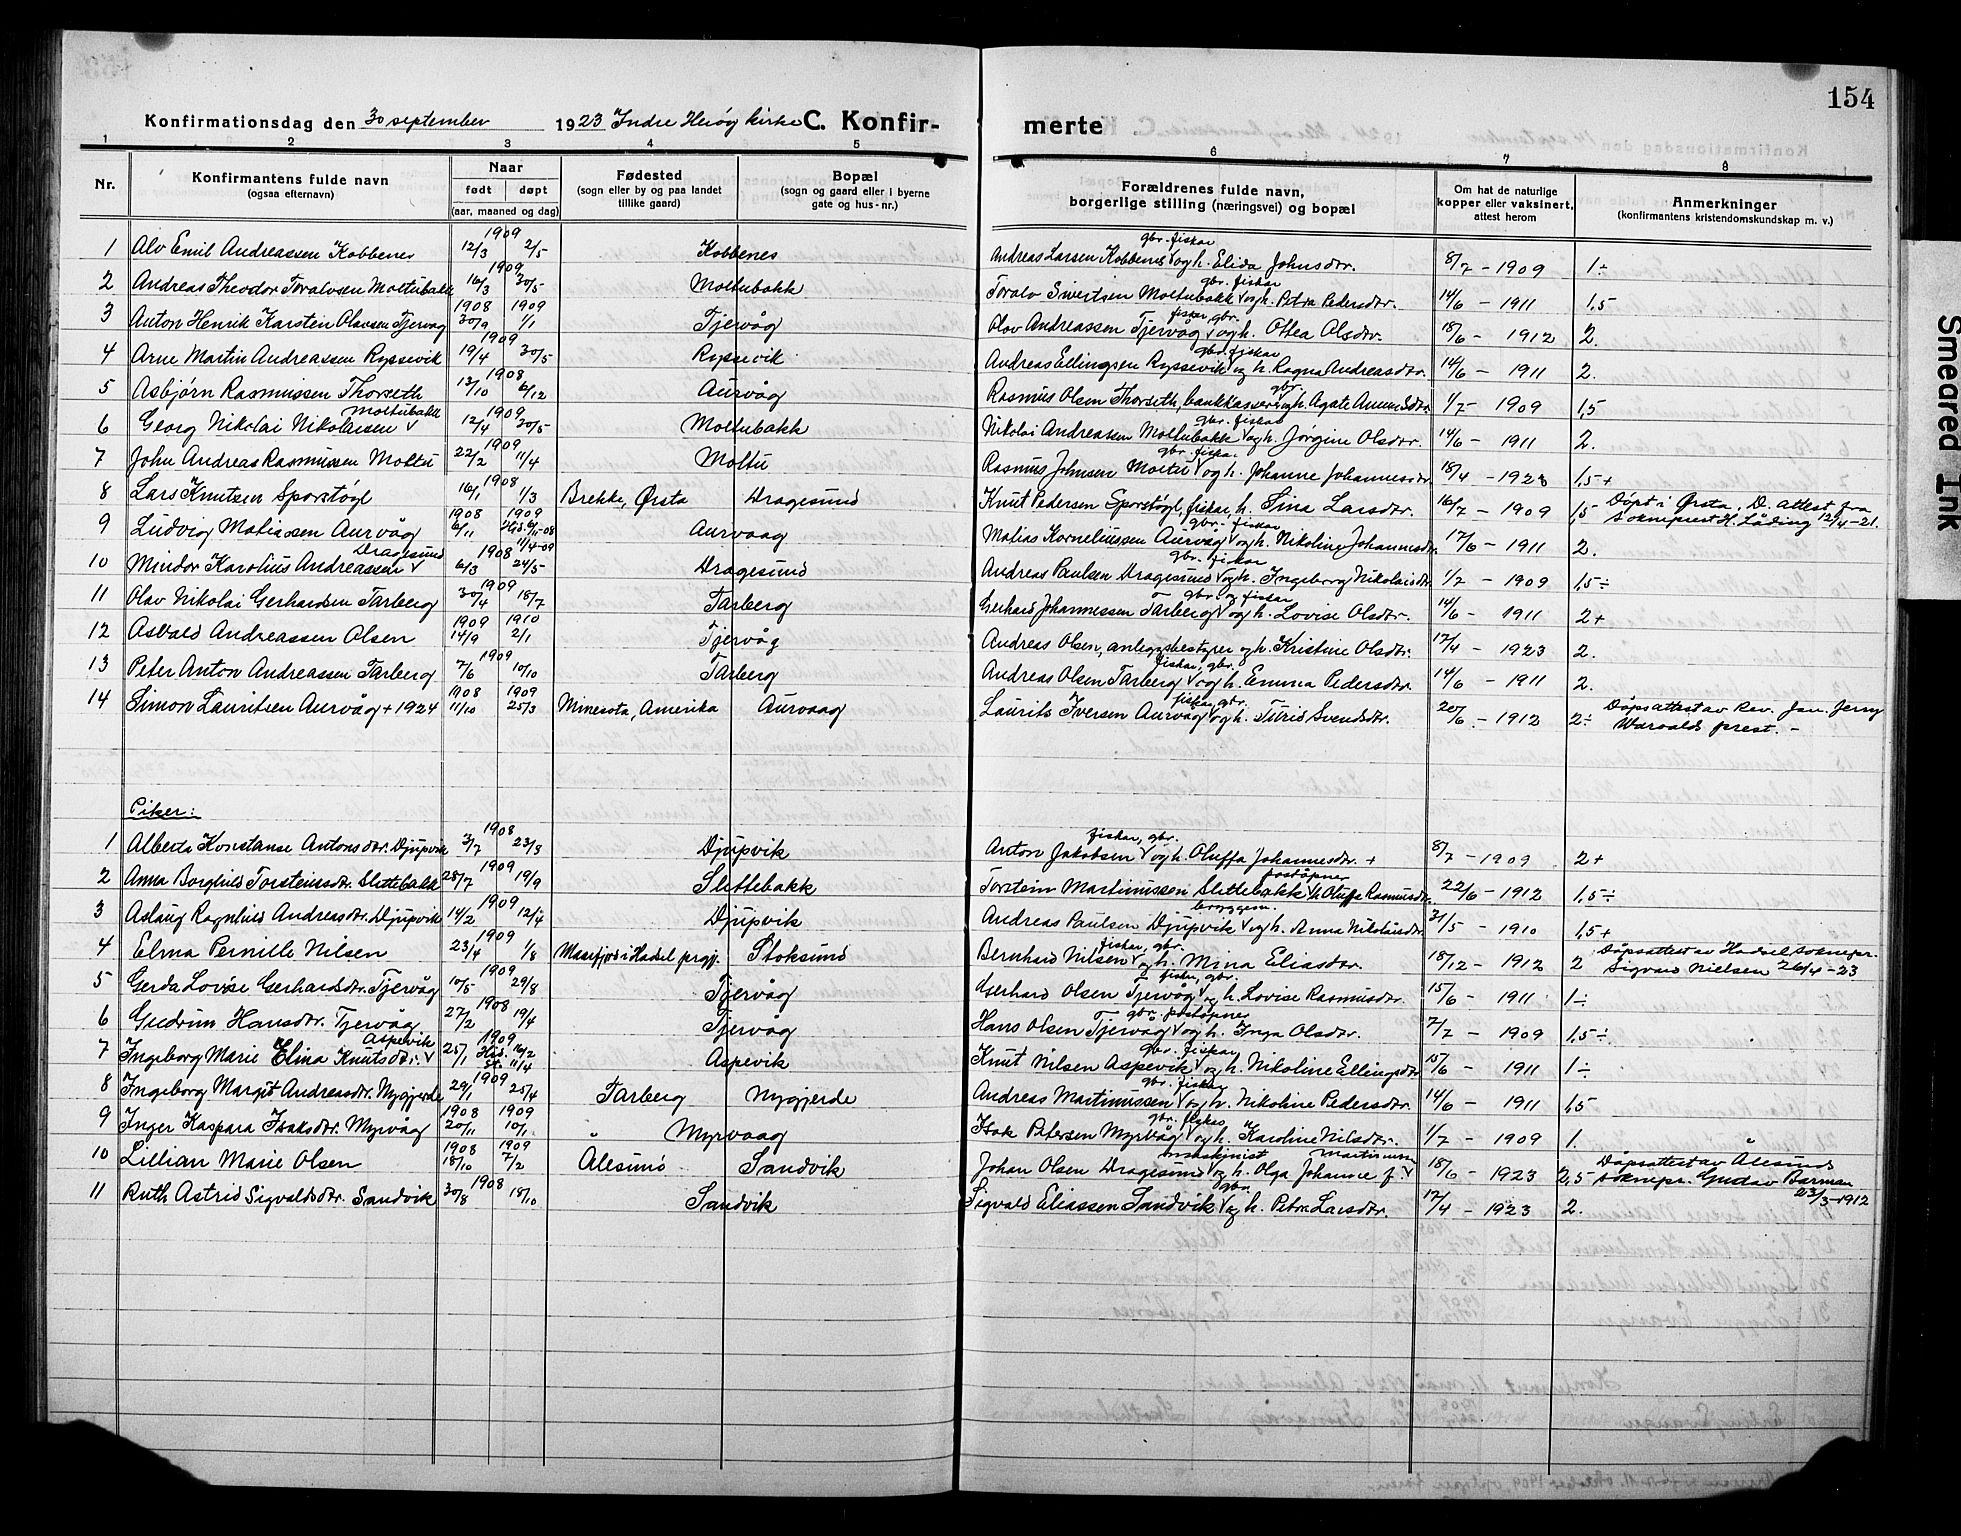 154
Konfirmationsdag den 30 september 1923 Indre Herøy kirke C. Konfir-merte
1 2 3 4 5 6 7 8
Nr. Konfirmantens fulde navn (ogsaa efternavn) Naar født døpt (aar, maaned og dag) Fødested (sogn eller by og paa landet tillike gaard) Bopæl (sogn og gaard eller i byerne gate og hus-nr.) Forældrenes fulde navn, borgerlige stilling (næringsvei) og bopæl Om hat de naturlige kopper eller vaksinert, attest herom Anmerkninger (konfirmantens kristendomskundskap m. v.)
1 Alv Emil Andreassen Kobbenes 1909 12/3 2/5 Kobbenes Andreas Larsen Kobbenes gbr. fiskar og h. Elida Johnsdtr. 8/7 - 1909 1÷
2 Andreas Theodor Toralvsen Moltubakk 1909 16/3 30/5 Moltubakk Toralv Sivertsen Moltubakk gbr. fiskar og h. Petra Pedersdtr. 14/6 - 1911 1,5
3 Anton Henrik Karsten Olavsen Tjervåg 1908 30/9 1909 1/1 Tjervåg Olav Andreassen Tjervåg fiskar, gbr. og h. Ottea Olsdtr. 18/6 - 1912 2.
4 Arne Martin Andreassen Ryssevik 1909 19/4 30/5 Ryssevik Andreas Ellingsen Ryssevik gbr. fiskar og h. Ragna Andreasdtr. 14/6 - 1911 2.
5 Asbjørn Rasmussen Thorseth 1908 13/10 6/12 Aurvåg Rasmus Olsen Thorseth, bankkasserer gbr. og h. Agate Amundsdtr. 1/7 - 1909 1,5
6 Georg Nikolai Nikolaisen Moltubakk 1909 12/4 30/5 Moltubakk Nikolai Andreassen Moltubakk gbr. fiskar og h. Jørgine Olsdtr. 14/6 - 1911 2.
7 John Andreas Rasmussen Moltu 1909 22/2 11/4 Moltu Rasmus Johnsen Moltu gbr. fiskar og h. Johanne Johannesdtr. 18/4 - 1923 1,5+
8 Lars Knutsen Sporstøgl 1908 16/1 1/3 Brekke, Ørsta Dragesund Knut Pedersen Sporstøgl, fiskar, h. Sina Larsdtr. 16/7 - 1909 1,5 Døpt i Ørsta, D. attest fra sokneprest H. Låding 12/4-21.
9 Ludvig Matiassen Aurvåg 1908 6/11 1909 Hjd. 6/11-08 11/4-09 Aurvaag Matias Korneliussen Aurvåg gbr. fiskar og h. Nikoline Johannesdtr. 17/6 - 1911 2.
10 Mindor Karolius Andreassen Dragesund 1908 6/3 24/5 Dragesund Andreas Paulsen Dragesund gbr. fiskar og h. Ingeborg Nikolaisdtr. 1/7 - 1909 1,5÷
11 Olav Nikolai Gerhardsen Tarberg 1909 30/4 18/7 Tarberg Gerhard Johannessen Tarberg gbr. og fiskar og h. Lovise Olsdtr. 14/6 - 1911 2+
12 Asvald Andreassen Olsen 1909 14/9 1910 2/1 Tjervåg Andreas Olsen, anleggsbestyrer og h. Kristine Olsdtr. 17/4 - 1923 2.
13 Peter Anton Andreassen Tarberg 1909 7/6 10/10 Tarberg Andreas Olsen Tarberg fiskar, gbr. og h. Emma Pedersdtr. 14/6 - 1911 2.
14 Simon Lauritsen Aurvåg + 1924 1908 11/10 1909 25/3 Minesota, Amerika Aurvaag Laurits Iversen Aurvåg fiskar, gbr. og h. Turid Svendsdtr. 20/6 - 1912 2÷ Dåpsattest av Rev. Jen. Jerny Warvalds prest. -
Piker:
1 Alberte Konstanse Antonsdtr. Djupvik 1908 3/7 23/8 Djupvik Anton Jakobsen fiskar, gbr. og h. Oluffa Johannesdtr. + 8/7 - 1909 2+
2 Anna Borghild Torsteinsdtr. Slettebakk 1909 28/7 19/9 Slettebakk Torstein Martinussen Slettebakk postopner h. Oluffa Rasmusdtr. 22/6 - 1912 1,5÷
3 Aslaug Ragnhild Andreasdtr. Djupvik 1909 14/2 12/4 Djupvik Andreas Paulsen Djupvik bryggem. og h. Anna Nikolaisdtr. 31/5 - 1910 1,5+
4 Elma Pernille Nilsen 1909 23/4 1/8 Masfjord i Hadsel prgj. Stoksund Bernhard Nilsen fiskar, gbr. og h. Mina Eliasdtr. 18/12 - 1912 2 Dåpsattest av Hadsel soknepr. Sigvard Nielsen 26/4-23
5 Gerda Lovise Gerhardsdtr. Tjervåg 1909 10/5 29/8 Tjervåg Gerhard Olsen Tjervåg fiskar, gbr. og h. Lovise Rasmusdtr. 15/6 - 1911 1÷
6 Gudrun Hansdtr. Tjervåg 1908 27/2 19/4 Tjervåg Hans Olsen Tjervåg gbr. postopner og h. Inga Olsdtr. 7/7 - 1909 1,5÷
7 Ingeborg Marie Elina Knutsdtr. Aspevik 1909 25/1 Hjd. 16/2 st. 11/4 Aspevik Knut Nilsen Aspevik gbr. fiskar og h. Nikoline Ellingsdtr. 15/6 - 1911 1÷
8 Ingeborg Margit Andreasdtr. Nygjerde 1909 29/1 25/4 Tarberg Nygjerde Andreas Martinussen gbr. fiskar og h. Nikoline Pedersdtr. 14/6 - 1911 1,5
9 Inger Kaspara Isaksdtr. Myrvåg 1908 20/11 1909 10/1 Myrvaag Isak Petersen Myrvåg gbr. og h. Karoline Nilsdtr. 1/7 - 1909 1.
10 Lillian Marie Olsen 1908 18/10 1909 7/2 Ålesund Sandvik Johan Olsen Dragesund maskinist og h. Olga Johanne f. Martinsen 18/6 - 1923 2,5 Dåpsattest av Ålesund soknepr. Gustav Barman 23/3-1912
11 Ruth Astrid Sigvaldsdtr. Sandvik 1908 30/8 18/10 Sandvik Sigvald Eliassen Sandvik gbr. og h. Petra Larsdtr. 17/4 - 1923 2.
Smeared Ink